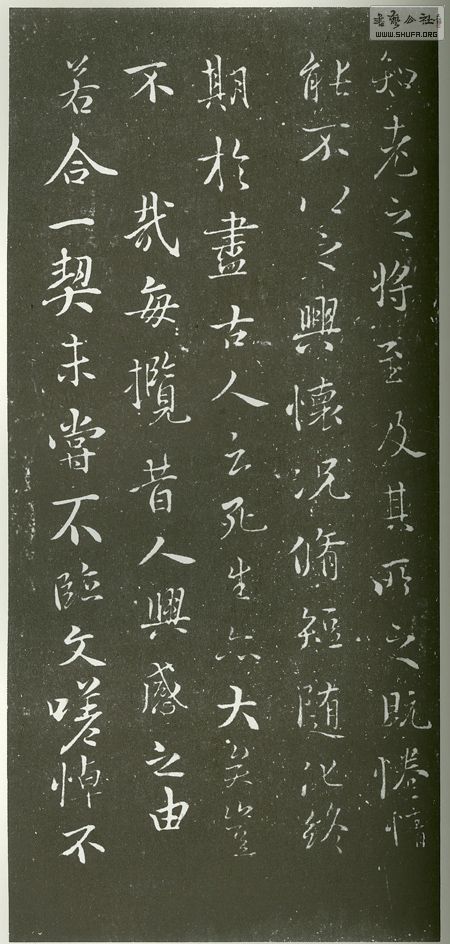 知老之将至及其所之既惓情
能不以之興懷况脩短随化終
期於盡古人云死生亦大矣豈
不 哉每攬昔人興感之由
若合一契未嘗不臨文嗟悼不
書藝公社
WWW.SHUFA.ORG